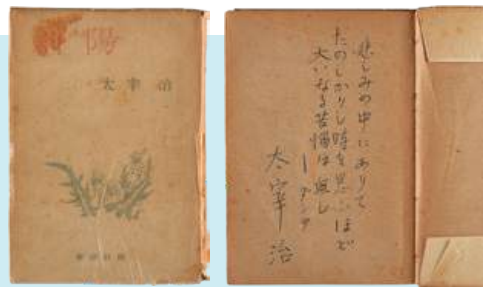 斜陽
太宰治
悲しみの中にありて
たのしかりし時を思ふほど
大いなる苦惱は無し
―ダンテ
太宰治